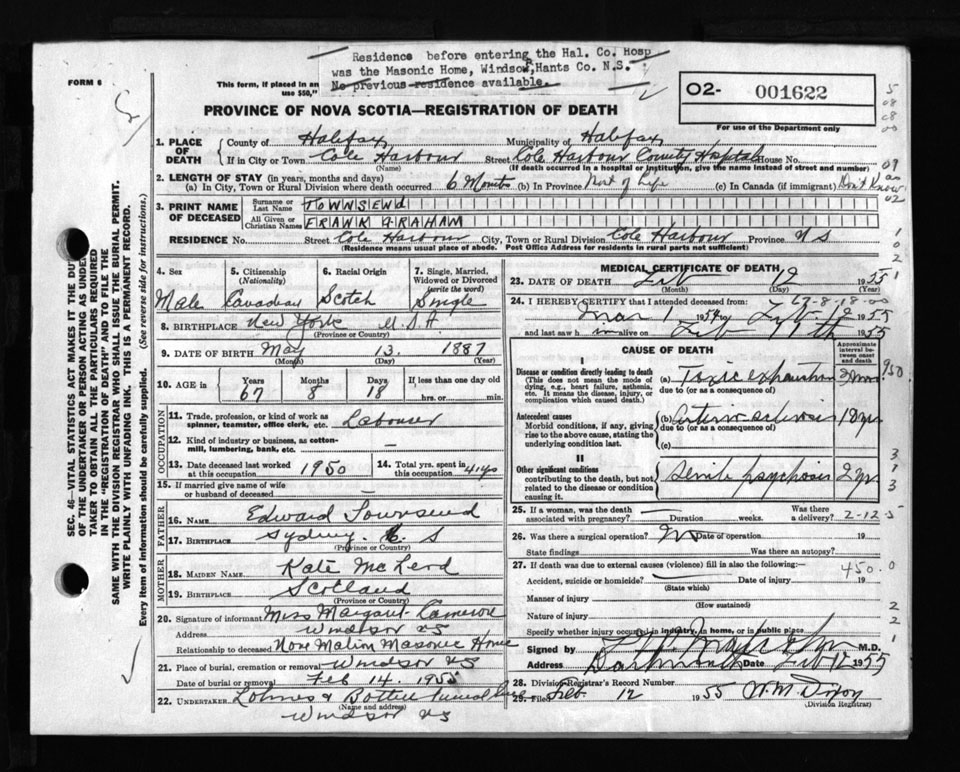 Residence before entering the Hal. Co. Hosp
was the Masonic Home, Windsor, Hants Co. N.S.
No previous residence available.
FORM 6
This form, if placed in an
use $50,"
02- 001622
For use of the Department only
PROVINCE OF NOVA SCOTIA—REGISTRATION OF DEATH
1. PLACE OF DEATH
County of Halifax, Municipality of Halifax,
If in City or Town Cole Harbour Street Cole Harbour County Hospital House No.
(Name) (If death occurred in a hospital or institution, give the name instead of street and number)
2. LENGTH OF STAY (in years, months and days)
(a) In City, Town or Rural Division where death occurred 6 Months (b) In Province Most of Life (c) In Canada (if immigrant) Don't Know
3. PRINT NAME OF DECEASED
Surname or Last Name TOWNSEND
All Given or Christian Names FRANK GRAHAM
RESIDENCE No. Street Cole Harbour City, Town or Rural Division Cole Harbour Province N S
(Residence means usual place of abode. Post Office Address for residents in rural parts not sufficient)
4. Sex Male
5. Citizenship (Nationality) Canadian
6. Racial Origin Scotch
7. Single, Married, Widowed or Divorced (write the word) Single
8. BIRTHPLACE New York U.S.A.
(Province or Country)
9. DATE OF BIRTH May 13 1887
(Month) (Day) (Year)
10. AGE in Years 67 Months 8 Days 18 If less than one day old hrs. or min.
OCCUPATION
11. Trade, profession, or kind of work as spinner, teamster, office clerk, etc. Labourer
12. Kind of industry or business, as cotton-mill, lumbering, bank, etc. —
13. Date deceased last worked at this occupation 1950
14. Total yrs. spent in this occupation
15. If married give name of wife or husband of deceased —
FATHER
16. NAME Edward Townsend
17. BIRTHPLACE Sydney. S
(Province or Country)
MOTHER
18. MAIDEN NAME Kate McLeod
19. BIRTHPLACE Scotland
(Province or Country)
20. Signature of informant Miss Margaret Cameron
Address Windsor NS
Relationship to deceased None Matron Masonic Home
21. Place of burial, cremation or removal Windsor NS
Date of burial or removal Feb 14. 1955
22. UNDERTAKER Lohnes & Funeral
(Name and address)
Windsor NS
MEDICAL CERTIFICATE OF DEATH
23. DATE OF DEATH Feb 12 1955
(Month) (Day)
24. I HEREBY CERTIFY that I attended deceased from:
Mar 1 1954 Feb 12 1955
and last saw h im alive on Feb 11th 1955
CAUSE OF DEATH
Approximate interval between onset and death
I
Disease or condition directly leading to death
(This does not mean the mode of dying, e.g., heart failure, asthenia, etc. It means the disease, injury, or complication which caused death.)
(a) Toxic exhaustion 2 mos
due to (or as a consequence of)
Antecedent causes
Morbid conditions, if any, giving rise to the above cause, stating the underlying condition last.
(b) Arteriosclerosis
due to (or as a consequence of)
(c)
II
Other significant conditions
contributing to the death, but not related to the disease or condition causing it.
Senile psychosis 2 yr.
25. If a woman, was the death associated with pregnancy? — Duration weeks. Was there a delivery?
2-12-5
26. Was there a surgical operation? No Date of operation 19
State findings Was there an autopsy?
27. If death was due to external causes (violence) fill in also the following:—
450.0
Accident, suicide or homicide? — Date of injury 19
(State which)
Manner of injury
(How sustained)
Nature of injury
Specify whether injury occurred in industry, in home, or in public place
Signed by M.D.
Address Dartmouth Date Feb 12 1955
28. Division Registrar's Record Number
29. Filed Feb. 12 1955 W. M. Dixon
(Division Registrar)
SEC. 46—VITAL STATISTICS ACT MAKES IT THE DUTY
OF THE UNDERTAKER OR PERSON ACTING AS UNDER-
TAKER TO OBTAIN ALL THE PARTICULARS REQUIRED
IN THE "REGISTRATION OF DEATH" AND TO FILE THE
SAME WITH THE DIVISION REGISTRAR WHO SHALL ISSUE THE BURIAL PERMIT.
WRITE PLAINLY WITH UNFADING INK. THIS IS A PERMANENT RECORD.
Every item of information should be carefully supplied. (See reverse side for instructions.)